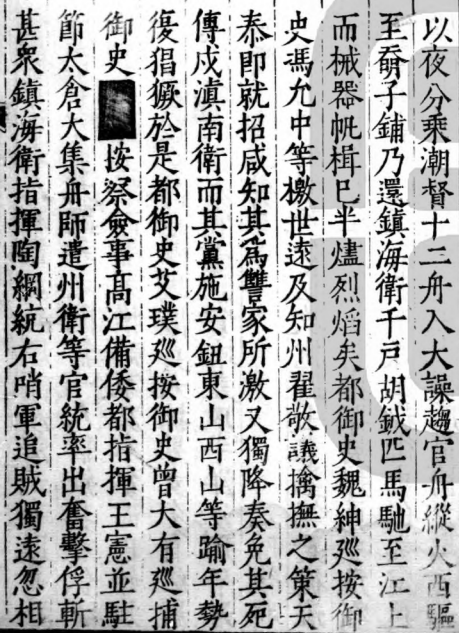 以夜分乘潮督十二舟入大譟趨官舟縱火西驅
至奣子鋪乃還鎮海衛千戸胡鉞匹馬馳至江上
而械器帆楫巳半燼烈熖矣都御史魏紳廵按御
史馮允中等檄世遠及知州翟敬議擒撫之策天
泰即就招咸知其爲讐家所激又獨降奏免其死
傳戍滇南衛而其黨施安鈕東山西山等踰年勢
復猖獗於是都御史艾璞廵按御史曾大有廵捕
御史 按察僉事髙江備倭都指揮王憲並駐
節太倉大集舟師遣州衛等官統率出奮擊俘斬
甚衆鎮海衛指揮陶綱統右哨軍追賊獨遠忽相